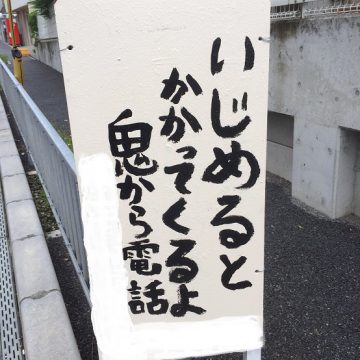 いじめると
かかってくるよ
鬼から電話